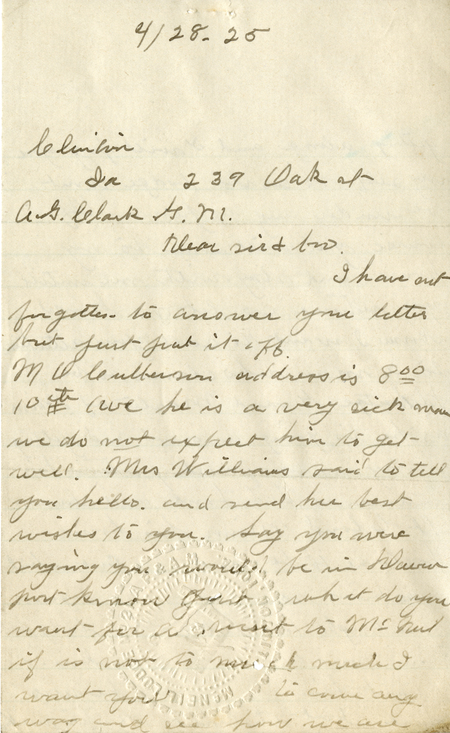 4/28-25
Clinton
Ia 239 Oak st
A.G. Clark G.M.
Dear sir & bro.
I have not
forgotten to answer your letter
but just put it off.
M O Culberson address is 800
10th Ave he is a very sick man
we do not expect him to get
well. Mrs Williams said to tell
you hello. and send her best
wishes to you. Say you were
saying you would be in Daven
port know what do you
want for a visit to Mc
if is not to much much I
want you to come any
way and see how we are